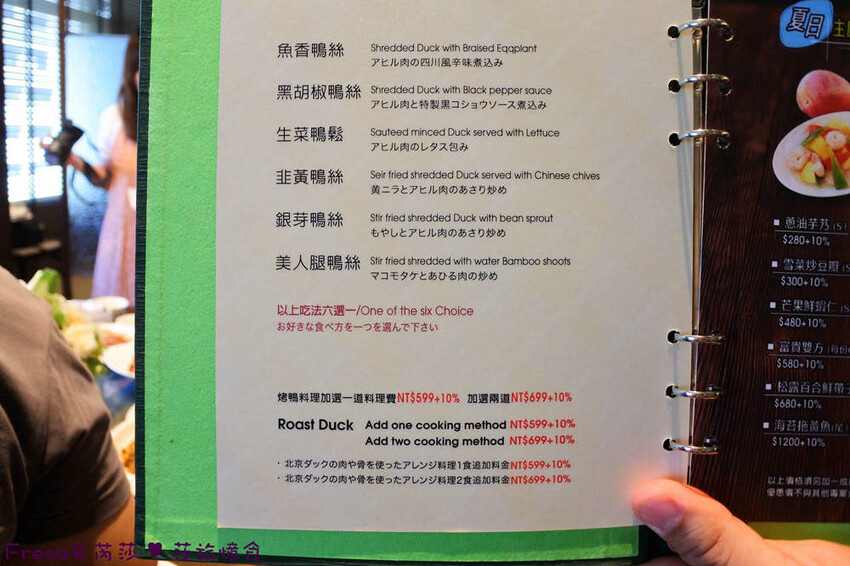 魚香鴨絲
Shredded Duck with Braised Eqqplant
アヒル肉の四川風辛味煮込み
黑胡椒鴨絲
Shredded Duck with Black pepper sauce
アヒル肉と特製黒コショウソース煮込み
生菜鴨鬆
Sauteed minced Duck served with Lettuce
アヒル肉のレタス包み
韭黃鴨絲
Seir fried shredded Duck served with Chinese chives
黄ニラとアヒル肉のあさり炒め
銀芽鴨絲
Stir fried shredded Duck with bean sprout
もやしとアヒル肉のあさり炒め
美人腿鴨絲
Stir fried shredded with water Bamboo shoots
マコモタケとあひる肉の炒め
以上吃法六選一/One of the six Choice
お好きな食べ方を一つを選んで下さい
烤鴨料理加選一道料理費NT$599+10% 加選兩道NT$699+10%
Roast Duck Add one cooking method NT$599+10%
Add two cooking method NT$699+10%
・北京ダックの肉や骨を使ったアレンジ料理1食追加料金NT$599+10%
・北京ダックの肉や骨を使ったアレンジ料理2食追加料金NT$699+10%
夏日
■ 蔥油芋艿(S)
$280+10%
■ 雪菜炒豆瓣(S
$300+10%
■ 芒果鮮蝦仁(S
$480+10%
■ 富貴雙方(每份
$580+10%
■ 松露百合鮮帶子
$680+10%
■ 海苔拖黃魚(尾)
$1200+10%
以上價格須另加一成
優惠價不與其他專案